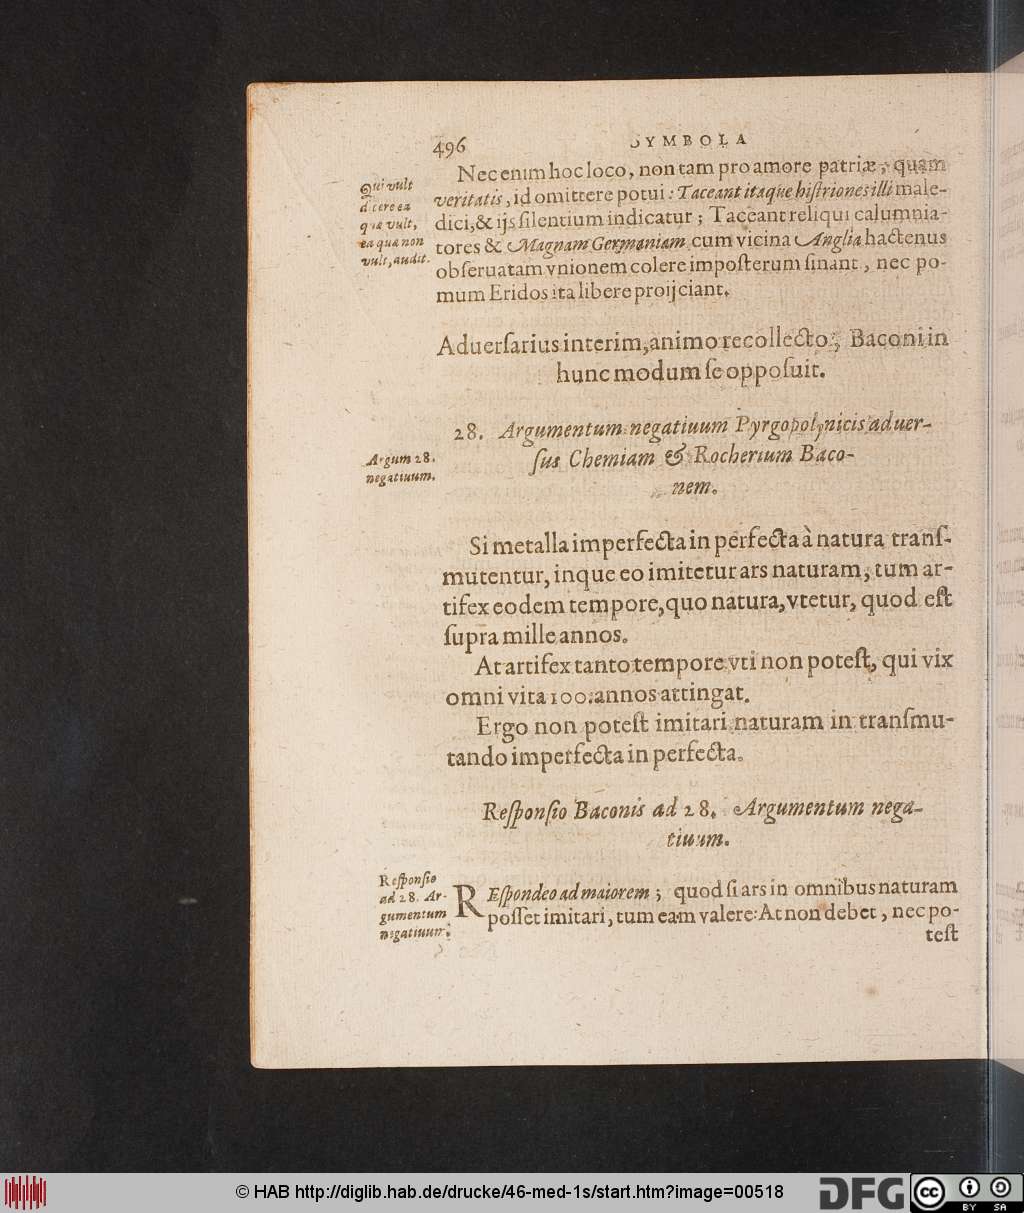 496
SYMBOLA
Nec enim hoc loco, non tam pro amore patriæ, quam
veritatis, id omittere potui: Taceant itaque histriones illi male-
dici, & ijs silentium indicatur; Taceant reliqui calumnia-
tores & Magnam Germaniam cum vicina Anglia hactenus
obseruatam vnionem colere imposterum sinant, nec po-
mum Eridos ita libere proijciant.
Qui vult
dicere ea
quæ vult,
ea quæ non
vult, audit.
Aduersarius interim, animo recollecto, Baconi in
hunc modum se opposuit.
28. Argumentum negatiuum Pyrgopolynicis aduer-
sus Chemiam & Rocherium Baco-
nem.
Argum 28.
negatiuum.
Si metalla imperfecta in perfecta à natura trans-
mutentur, inque eo imitetur ars naturam, tum ar-
tifex eodem tempore, quo natura, vtetur, quod est
supra mille annos.
At artifex tanto tempore vti non potest, qui vix
omni vita 100. annos attingat.
Ergo non potest imitari naturam in transmu-
tando imperfecta in perfecta.
Responsio Baconis ad 28. Argumentum nega-
tiuum.
Responsio
ad 28. Ar-
gumentum
negatiuum.
REspondeo ad maiorem; quod si ars in omnibus naturam
posset imitari, tum eam valere: At non debet, nec po-
test
© HAB http://diglib.hab.de/drucke/46-med-1s/start.htm?image=00518
DFG
cc BY SA